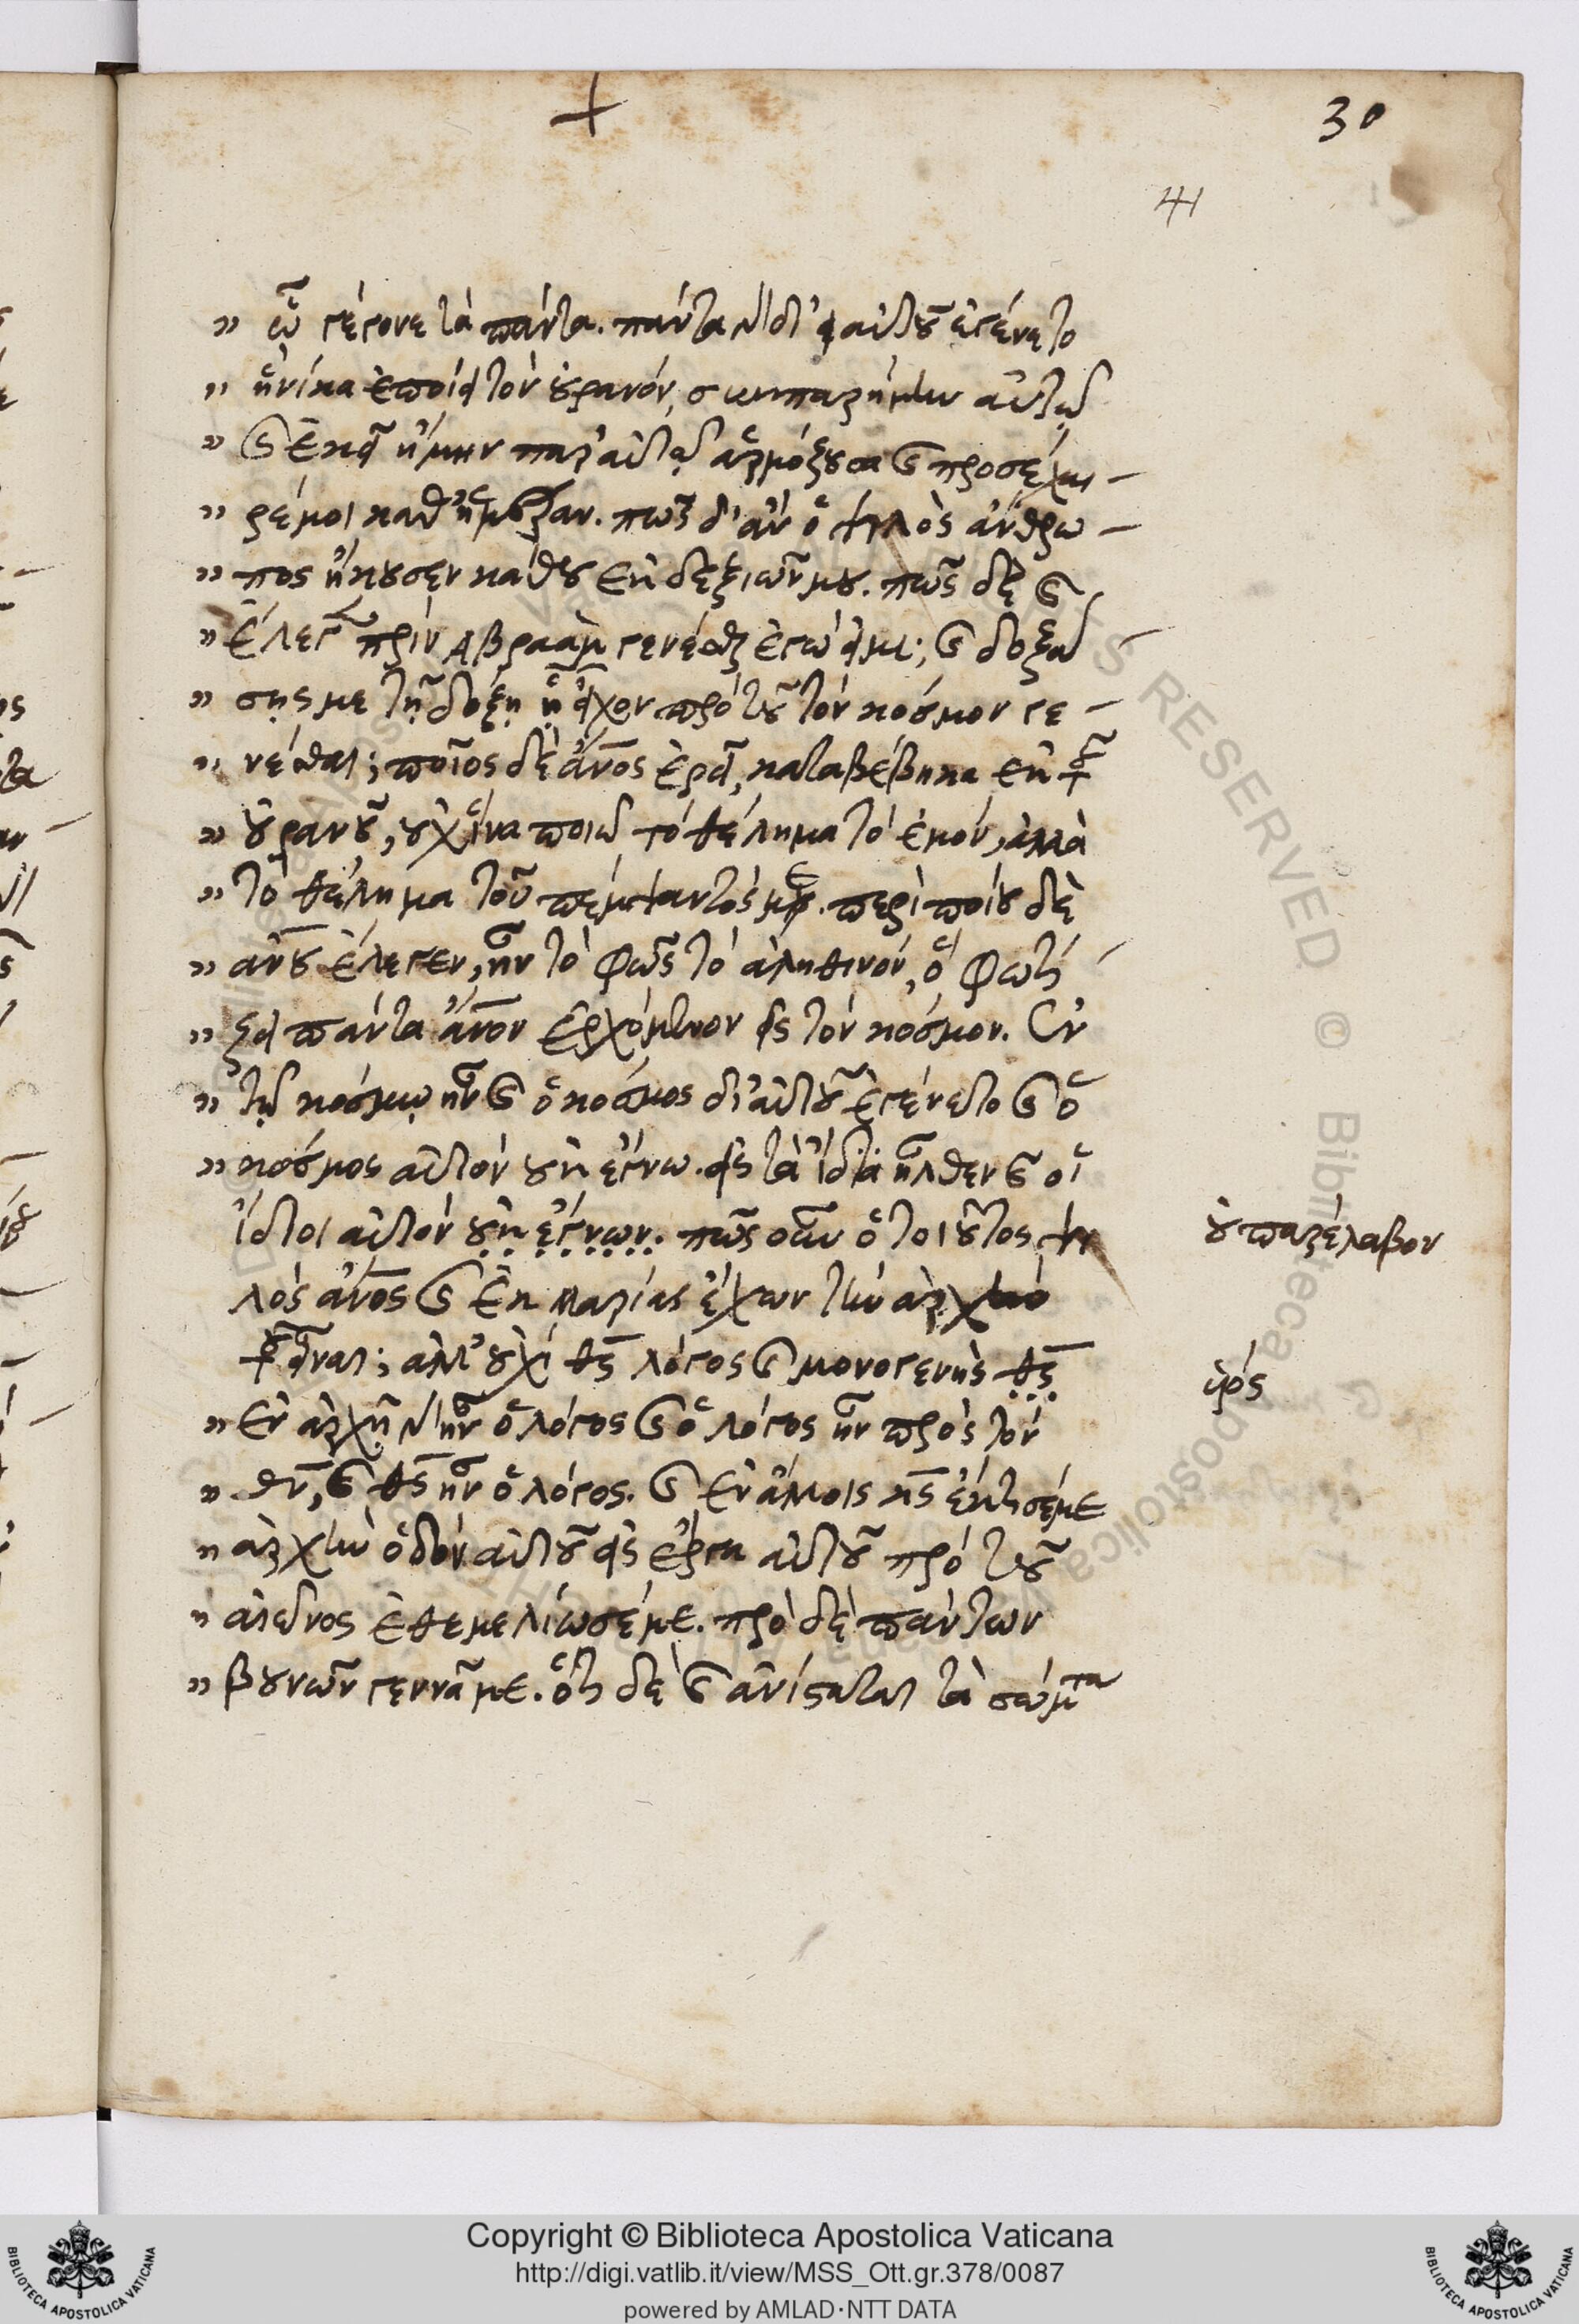 30
41
ᾧ γέγονε τὰ πάντα. πάντα γὰρ δι' αὐτοῦ ἐγένετο
ἡνίκα ἐποίει τὸν οὐρανόν, συμπαρήμην αὐτῷ
καὶ ἐκεῖ ἤμην παρ' αὐτῷ ἁρμόζουσα καὶ προσέχαι
ρέ μοι καθ' ἡμέραν. πῶς δ' ἂν ὁ ψιλὸς ἄνθρω
πος ἤκουσεν κάθου ἐκ δεξιῶν μου. πῶς δὲ καὶ
ἔλεγε πρὶν Αβραὰμ γενέσθαι ἐγώ εἰμι; καὶ δοξά
σῃς με τῇ δόξῃ ᾗ εἶχον πρὸ τοῦ τὸν κόσμον γε
νέσθαι; ποῖος δὲ ἄνος ἐρεῖ, καταβέβηκα ἐκ τοῦ
οὐρανοῦ, οὐχ ἵνα ποιῶ τὸ θέλημα τὸ ἐμόν, ἀλλὰ
τὸ θέλημα τοῦ πέμψαντός με. περὶ ποίου δὲ
ἀνου ἔλεγεν, ἦν τὸ φῶς τὸ ἀληθινόν, ὃ φωτί
ζει πάντα ἄνον ἐρχόμενον εἰς τὸν κόσμον. ἐν
τῷ κόσμῳ ἦν καὶ ὁ κόσμος δι' αὐτοῦ ἐγένετο καὶ ὁ
κόσμος αὐτὸν οὐκ ἔγνω. εἰς τὰ ἴδια ἦλθεν καὶ οἱ
ἴδιοι αὐτὸν οὐκ ἔγνων. πῶς οὖν ὁ τοιοῦτος ψι
οὐ παρέλαβον
λὸς ἄνος καὶ ἐκ Μαρίας ἔχων τὴν ἀρχὴν
τοῦ εἶναι; ἀλλ' οὐχὶ θς λόγος καὶ μονογενὴς θς
υἱός
Ἐν ἀρχῇ γὰρ ἦν ὁ λόγος καὶ ὁ λόγος ἦν πρὸς τὸν
θν, καὶ θς ἦν ὁ λόγος. καὶ ἐν ἄλλοις κς ἔκτισέ με
ἀρχὴν ὁδῶν αὐτοῦ εἰς ἔργα αὐτοῦ πρὸ τοῦ
αἰῶνος ἐθεμελίωσέ με. πρὸ δὲ πάντων
βουνῶν γεννᾷ με. ὅτι δὲ καὶ ἀνίσταται τὰ σώματα
Copyright © Biblioteca Apostolica Vaticana
http://digi.vatlib.it/view/MSS_Ott.gr.378/0087
powered by AMLAD·NTT DATA